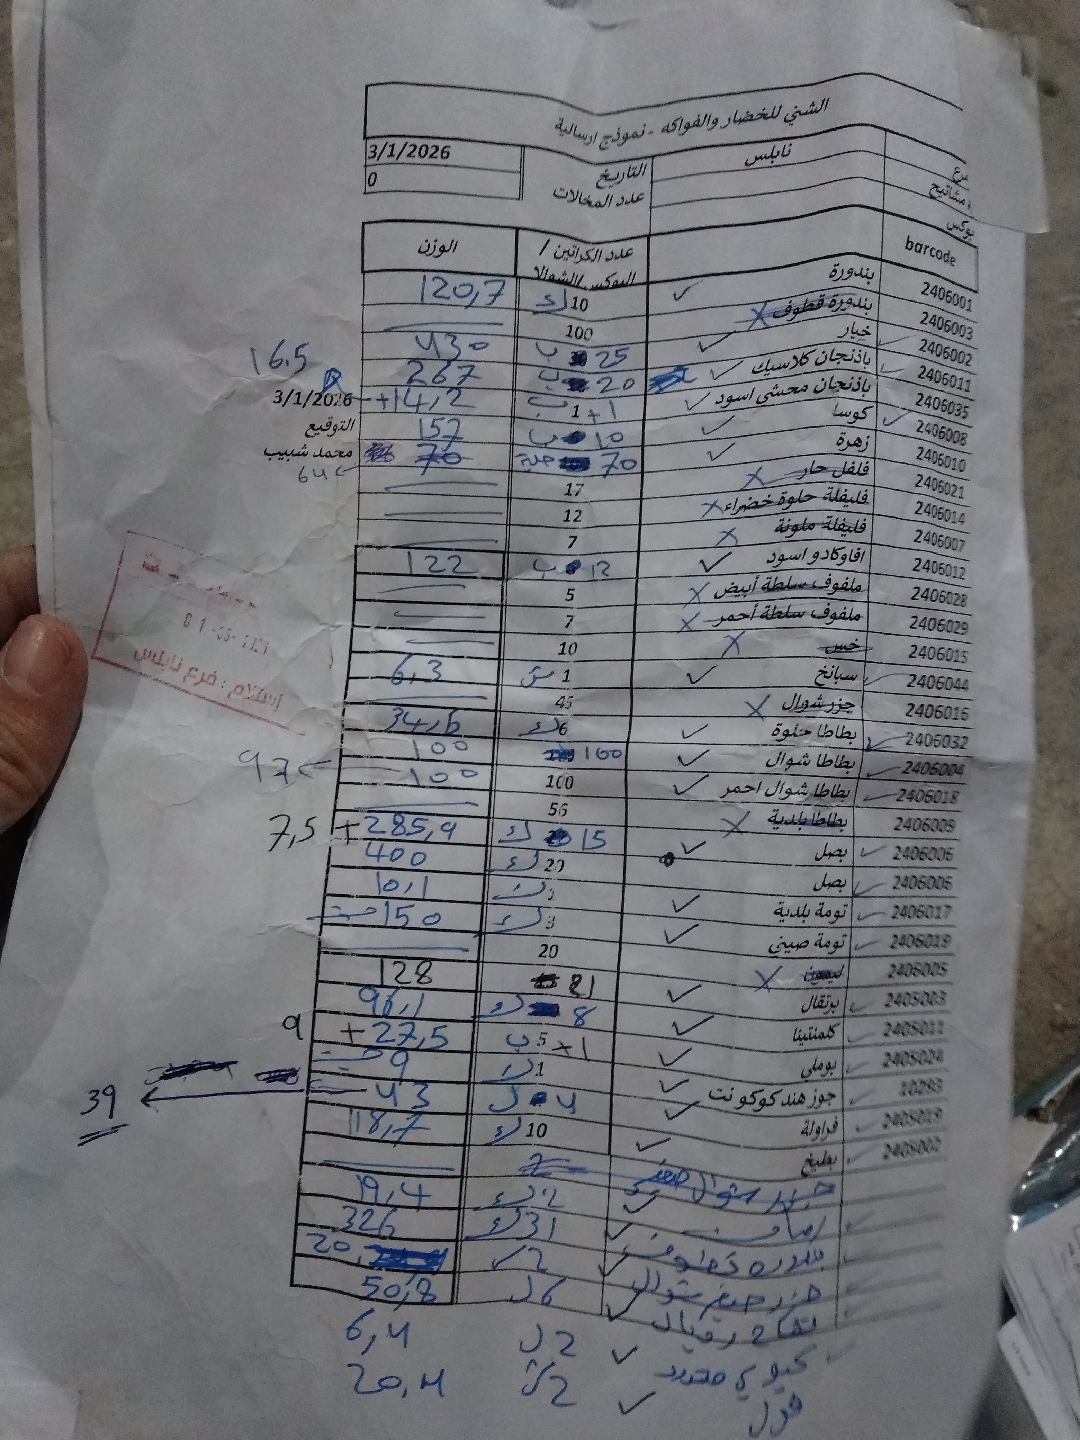 الشني للخضار والفواكه - نموذج ارسالية
نابلس
التاريخ 3/1/2026
مشاتيح عدد المخالات 0
بوكس
barcode عدد الكراتين / البوكس/الشوالا الوزن
2406001 بندورة 10 ك 120,7
2406003 بندورة قطوف 100
2406002 خيار 25 ب 430
2406011 باذنجان كلاسيك 20 ب 267 16.5
2406035 باذنجان محشي اسود 1+1 ب 14,2+ 3/1/2026
2406008 كوسا 10 ب 157 التوقيع
2406010 زهرة 70 حبة 70 محمد شبيب
64
2406021 فلفل حار 17
2406014 فليفلة حلوة خضراء 12
2406007 فليفلة ملونة 7
2406012 افاوكادو اسود 12 ب 122
2406028 ملفوف سلطة أبيض 5
2406029 ملفوف سلطة أحمر 7
2406015 خس 10
2406044 سبانخ 1 6,3
2406016 جزر شوال 45
2406032 بطاطا حلوة 6 ك 34,6
2406004 بطاطا شوال 100 100 97
2406018 بطاطا شوال احمر 100 100
2406009 بطاطا بلدية 56
2406006 بصل 15 ك 285,9 + 7,5
2406006 بصل 20 ك 400
2406017 تومة بلدية 10,1
2406019 تومة صيني 3 ك 150
2406005 ليمون 20
2405003 برتقال 21 128
2405011 كلمنتينا 8 ك 96,1
2405024 بوملي 5+1 ب 27,5 + 9
10293 جوز هند كوكونت 1 9
2405019 فراولة 4 43 39
2405002 بطيخ 10 ك 118,7
2 ك 19,4
31 ك 326
بندورة قطوف
2 20
جزر صيني شوال
6 50,8
تفاح رويال
2 6,4
كيوي
2 20,4
فول
استلام : فرع نابلس